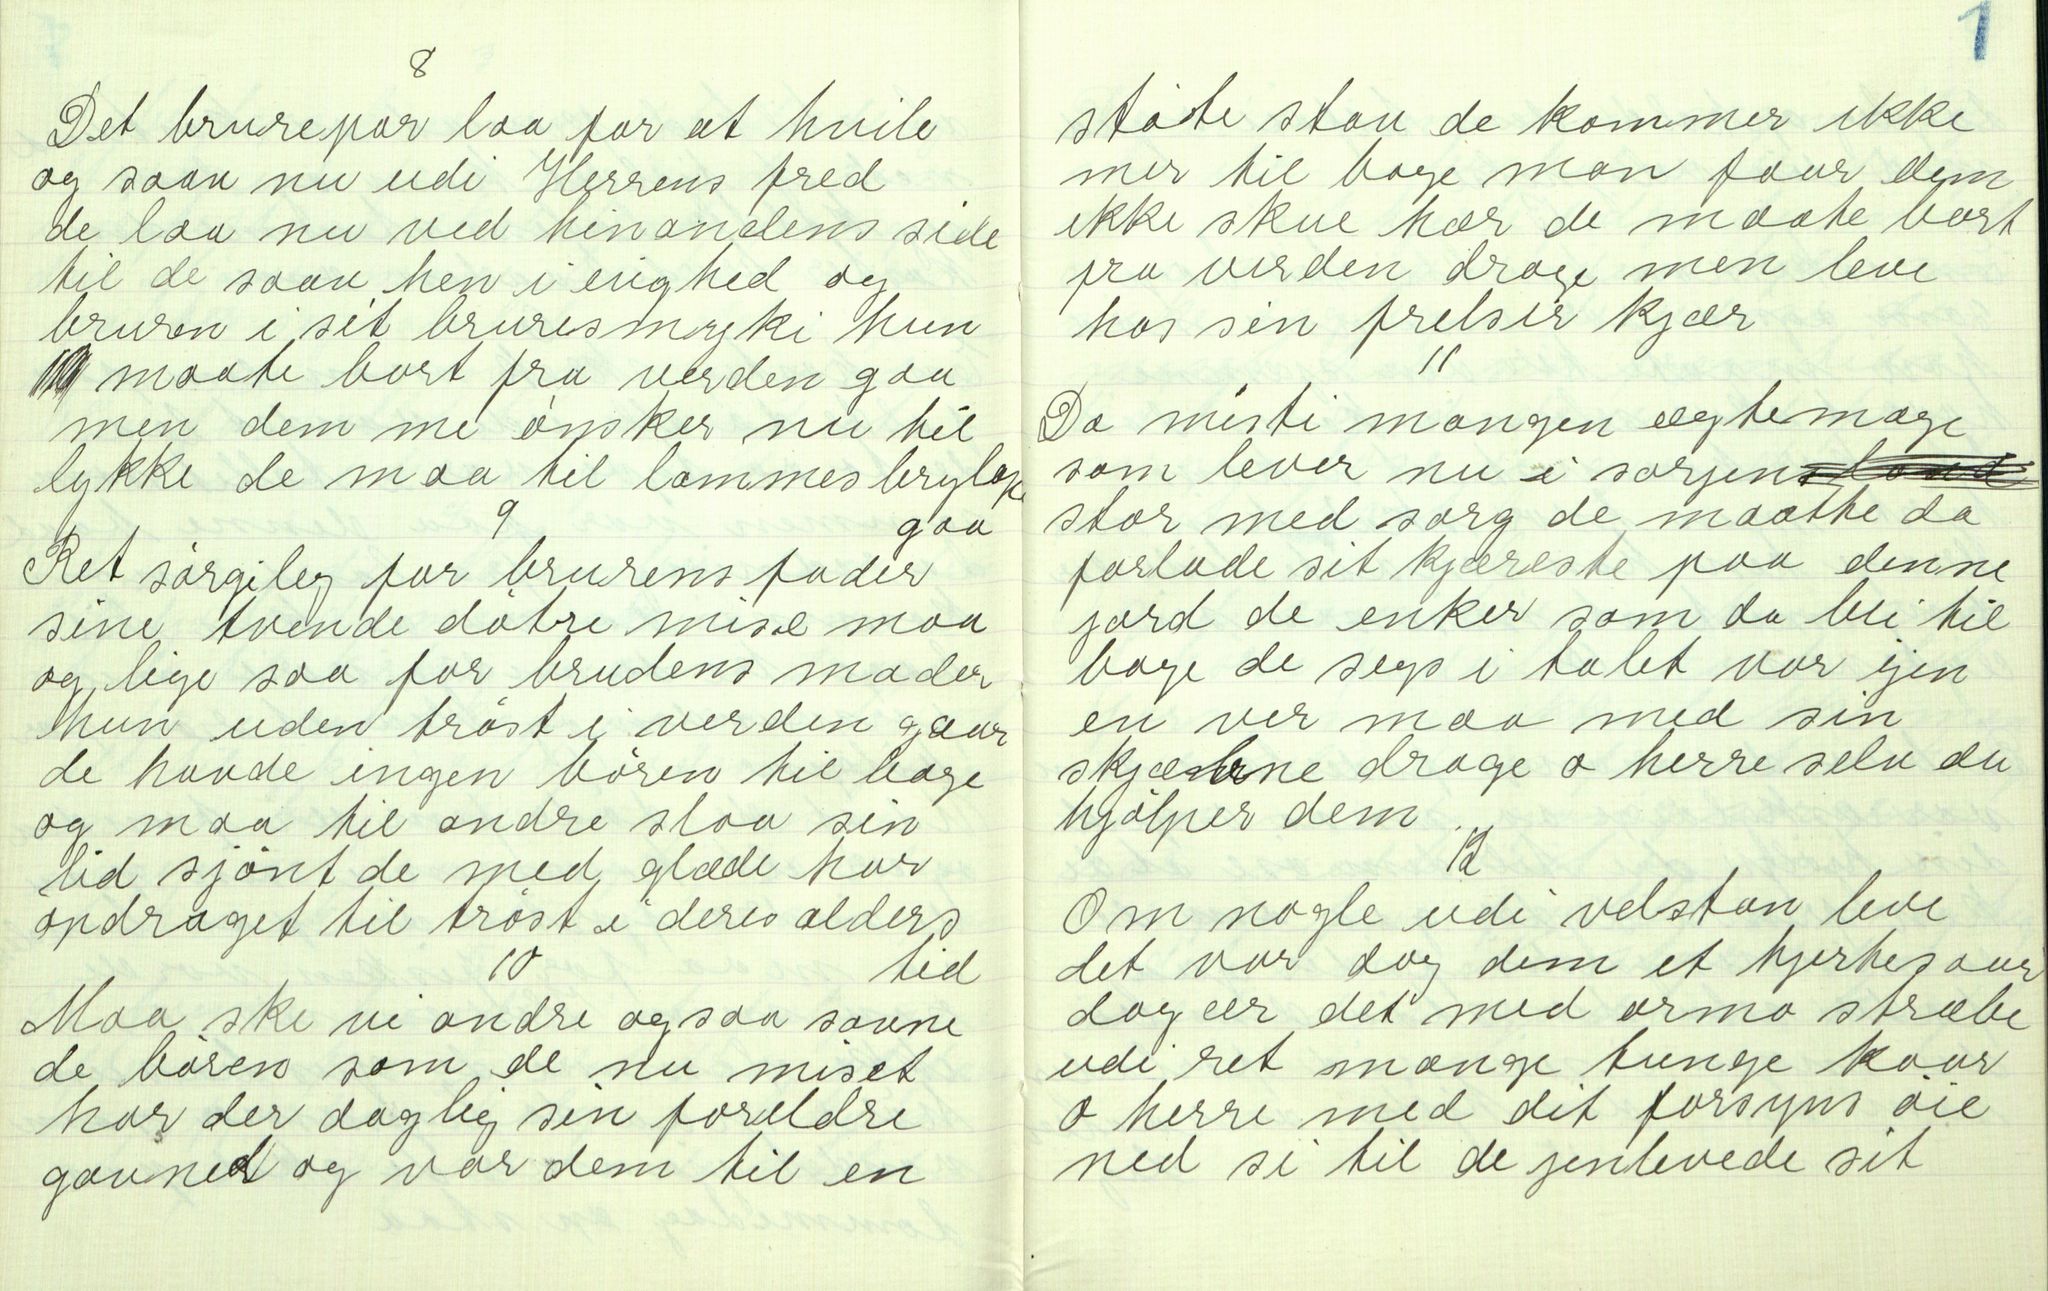 8
Det brurepar laa for at hvile
og saav nu udi Herrens fred
de laa nu ved hinandens side
til de saav hen i enighed og
bruren i sit bruresmykki hun
maate bort fra verden gaa
men dem me ønsker nu til
lykke de maa til lammes brylop
gaa
9
Ret sørgileg for brurens fader
sine tvende døtre mise maa
og lige saa for brudens moder
hun uden trøst i verden gaar
de havde ingen børen til bage
og maa til andre slaa sin
lid sjønt de med glæde har
opdraget til trøst i deres alders
tid
10
Maa ske vi andre ogsaa savne
de børen som de nu miset
har der daglig sin foreldre
gavned og var dem til en
1
støte stav de kommer ikke
mer til bage man faar dem
ikke skue hær de maate bort
fra verden drage men leve
hos sin frelser kjær
11
Da misti mangen ægtemage
som lever nu i sorgen
stor med sorg de maatte da
forlade sit kjæreste paa denne
jord de enker som da blei til
bage de seys i talet var igen
en ver maa med sin
skjæbne drage o herre selv du
hjølper dem
12
Om nogle udi velstan leve
det var dog dem et hjertesaar
dog er det med armo stræbe
udi ret mange tunge kaar
o herre med dit forsyns øie
ned si til de jenlevede sit